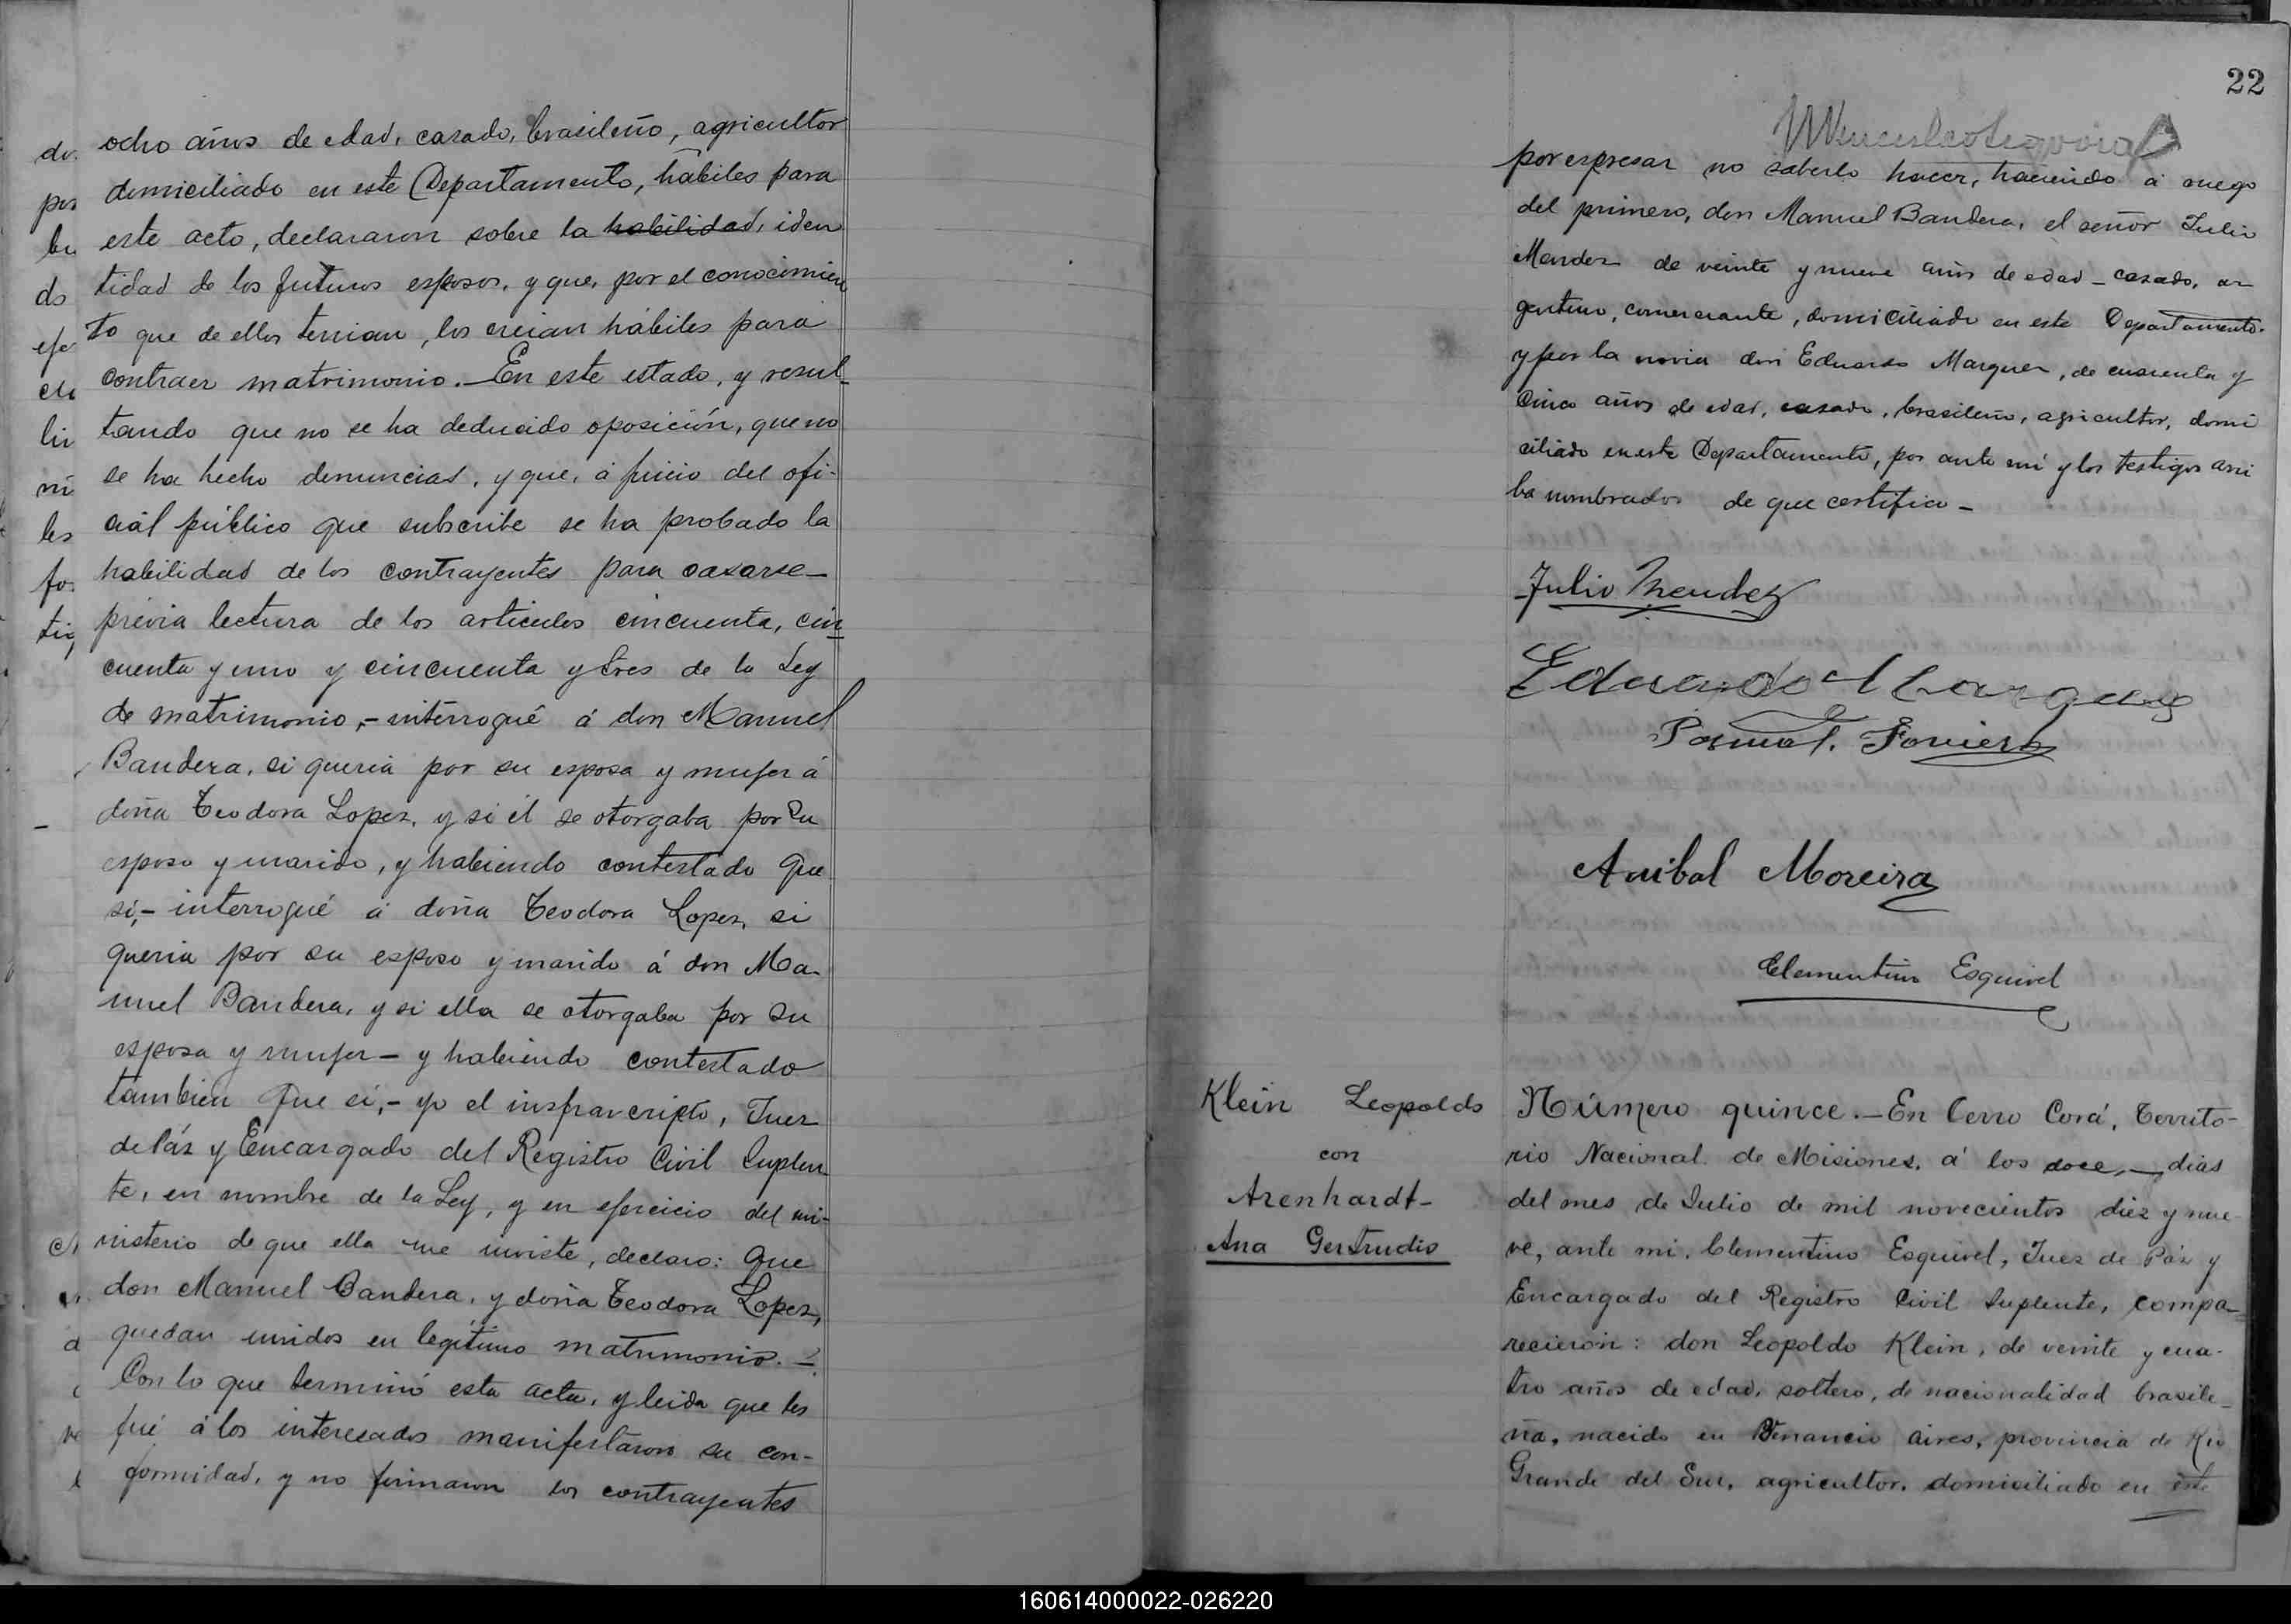 ocho años de edad, casado, brasileño, agricultor
domiciliado en este Departamento, hábiles para
este acto, declararon sobre la habilidad, iden
tidad de los futuros esposos, y que, por el conocimien
to que de ellos tenian, los creian hábiles para
contraer matrimonio.—En este estado, y resul-
tando que no se ha deducido oposición, que no
se ha hecho denuncias, y que, á juicio del ofi-
cial público que subscribe se ha probado la
habilidad de los contrayentes para casarse—
prévia lectura de los articulos cincuenta, cin
cuenta y uno y cincuenta y tres de la Ley
de matrimonio,—intérrogué á don Manuel
Bandera, si queria por su esposa y mujer á
doña Teodora Lopez, y si él se otorgaba por su
esposo y marido, y habiendo contestado que
si,—interrogué á doña Teodora Lopez, si
queria por su esposo y marido á don Ma-
nuel Bandera, y si ella se otorgaba por su
esposa y mujer—y habiendo contestado
tambien que si,—yo el insfrascripto, Juez
de Páz y Encargado del Registro Civil Suplen
te, en nombre de la Ley, y en ejercicio del mi-
nisterio de que ella me inviste, declaro: que
don Manuel Bandera, y doña Teodora Lopez,
quedan unidos en legítimo matrimonio.—
Con lo que terminó esta acta, y leida que les
fué á los interesados manifestaron su con-
formidad, y no firmaron los contrayentes
22
por espresar no saberlo hacer, haciendo á ruego
del primero, don Manuel Bandera, el señor Julio
Mendez de veinte y nueve años de edad—casado, ar
gentino, comerciante, domiciliado en este Departamento.
y por la novia don Eduardo Marquez, de cuarenta y
cinco años de edad, casado, brasileño, agricultor, domi
ciliado en este Departamento, por ante mi y los testigos arri
ba nombrados de que certifico—
Julio Mendez
Eduardo Marques
Aníbal Moreira
Clementino Esquivel
Klein Leopoldo
con
Arenhardt-
Ana Gertrudis
Número quince.—En Cerro Corá, Territo-
rio Nacional de Misiones, á los doce,— dias
del mes de Julio de mil novecientos diez y nue-
ve, ante mi, Clementino Esquivel, Juez de Páz y
Encargado del Registro Civil Suplente, compa-
recieron: don Leopoldo Klein, de veinte y cua-
tro años de edad, soltero, de nacionalidad brasile-
ña, nacido en Venancio aires, provincia de Rio
Grande del Sur, agricultor, domiciliado en este
160614000022-026220